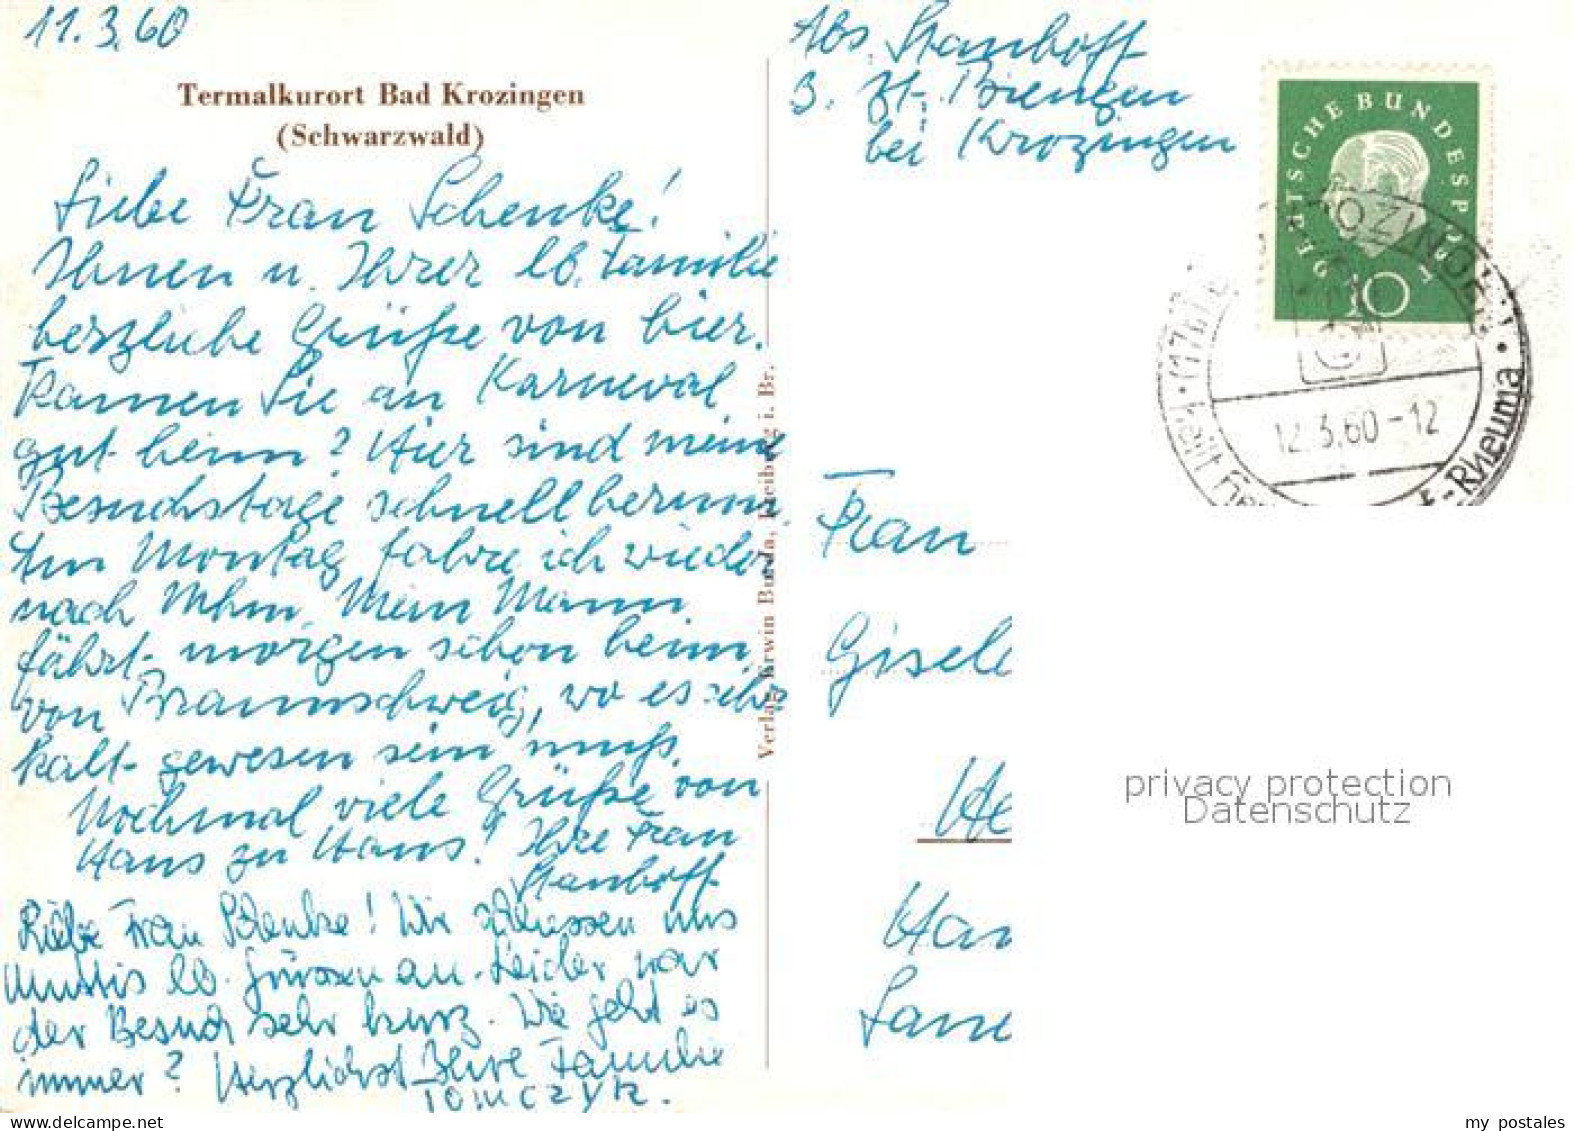 11.3.60
Termalkurort Bad Krozingen
(Schwarzwald)
Liebe Frau Schenke!
Ihnen u. Ihrer lb. Familie
herzliche Grüße von hier.
Kamen Sie an Karneval
gut heim? Hier sind meine
Besuchstage schnell herum.
Am Montag fahre ich wieder
nach Mhm. Mein Mann
fährt morgen schon heim
von Braunschweig, wo es sehr
kalt gewesen sein muß.
Nochmal viele Grüße von
Haus zu Haus! Ihre Frau
Stanhoff
Liebe Frau Schenke! Wir schliessen uns
Muttis lb. Grüssen an. Leider war
der Besuch sehr kurz. Wie geht es
immer? Herzlichst Ihre Familie
Tomczyk.
Verlag Erwin Burda, Freiburg i. Br.
Abs. Stanhoff
z. Zt. Biengen
bei Krozingen
DEUTSCHE BUNDESPOST
10
KROZINGEN
12.3.60-12
heilt Herz-Rheuma
Frau
Gisele
He
Han
Lane
privacy protection
Datenschutz
my postales